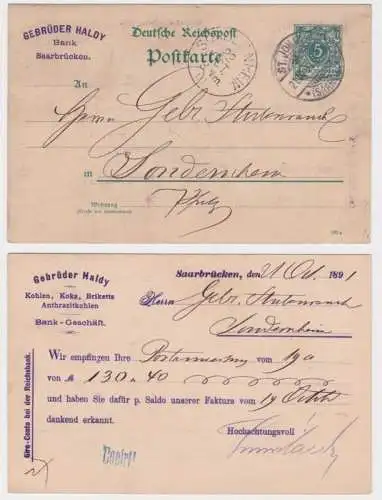 GEBRÜDER HALDY
Bank
Saarbrücken.
Deutsche Reichspost
Postkarte
5
ST. JOH
An
Herrn Gebr. Stubenrauch
in Sondernheim
Pfalz
Wohnung
(Straße und Hausnummer)
Gebrüder Haldy
Kohlen, Koks, Briketts
Anthrazitkohlen
Bank-Geschäft.
Giro-Conto bei der Reichsbank.
Saarbrücken, den 21 Oct. 1891
Herrn Gebr. Stubenrauch
Sondernheim
Wir empfingen Ihre Postanweisung vom 19
von M 130.40
und haben Sie dafür p. Saldo unserer Faktura vom 19 Octob
dankend erkannt.
Hochachtungsvoll
Copirt